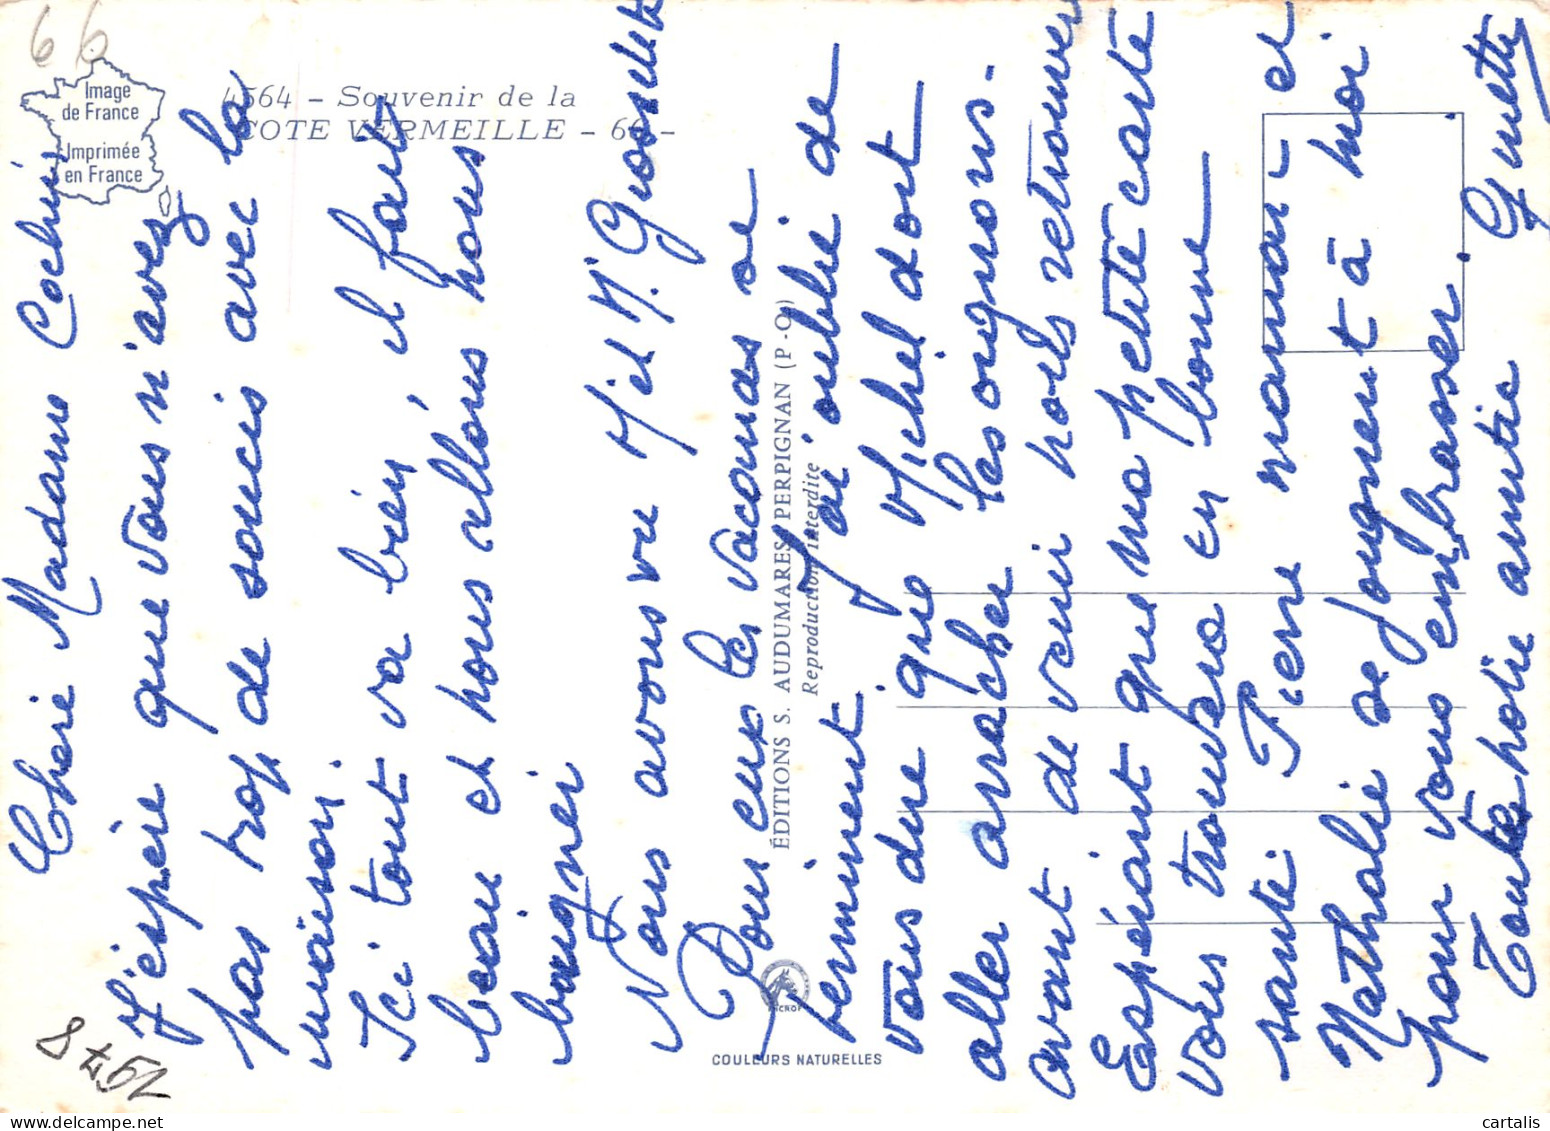 66
Image
de France
Imprimée
en France
4564 - Souvenir de la
COTE VERMEILLE - 66 -
ÉDITIONS S. AUDUMARES PERPIGNAN (P-O)
Reproduction interdite
COULEURS NATURELLES
1978
Chère Madame Cochin
J'espère que vous n'avez
pas trop de soucis avec la
maison
Ici tout va bien, il fait
beau et nous allons nous
baigner
Nous avons vu M et M.
Pour eux les vacances se
terminent. J'ai oublié de
vous dire que Michel doit
aller arracher les oignons
avant de venir nous retrouver
Espérant que ma petite carte
vous trouvera en bonne
santé. Pierre maman et
Nathalie se joignent à moi
pour vous embrasser.
Toute notre amitié Ginette
cartalis